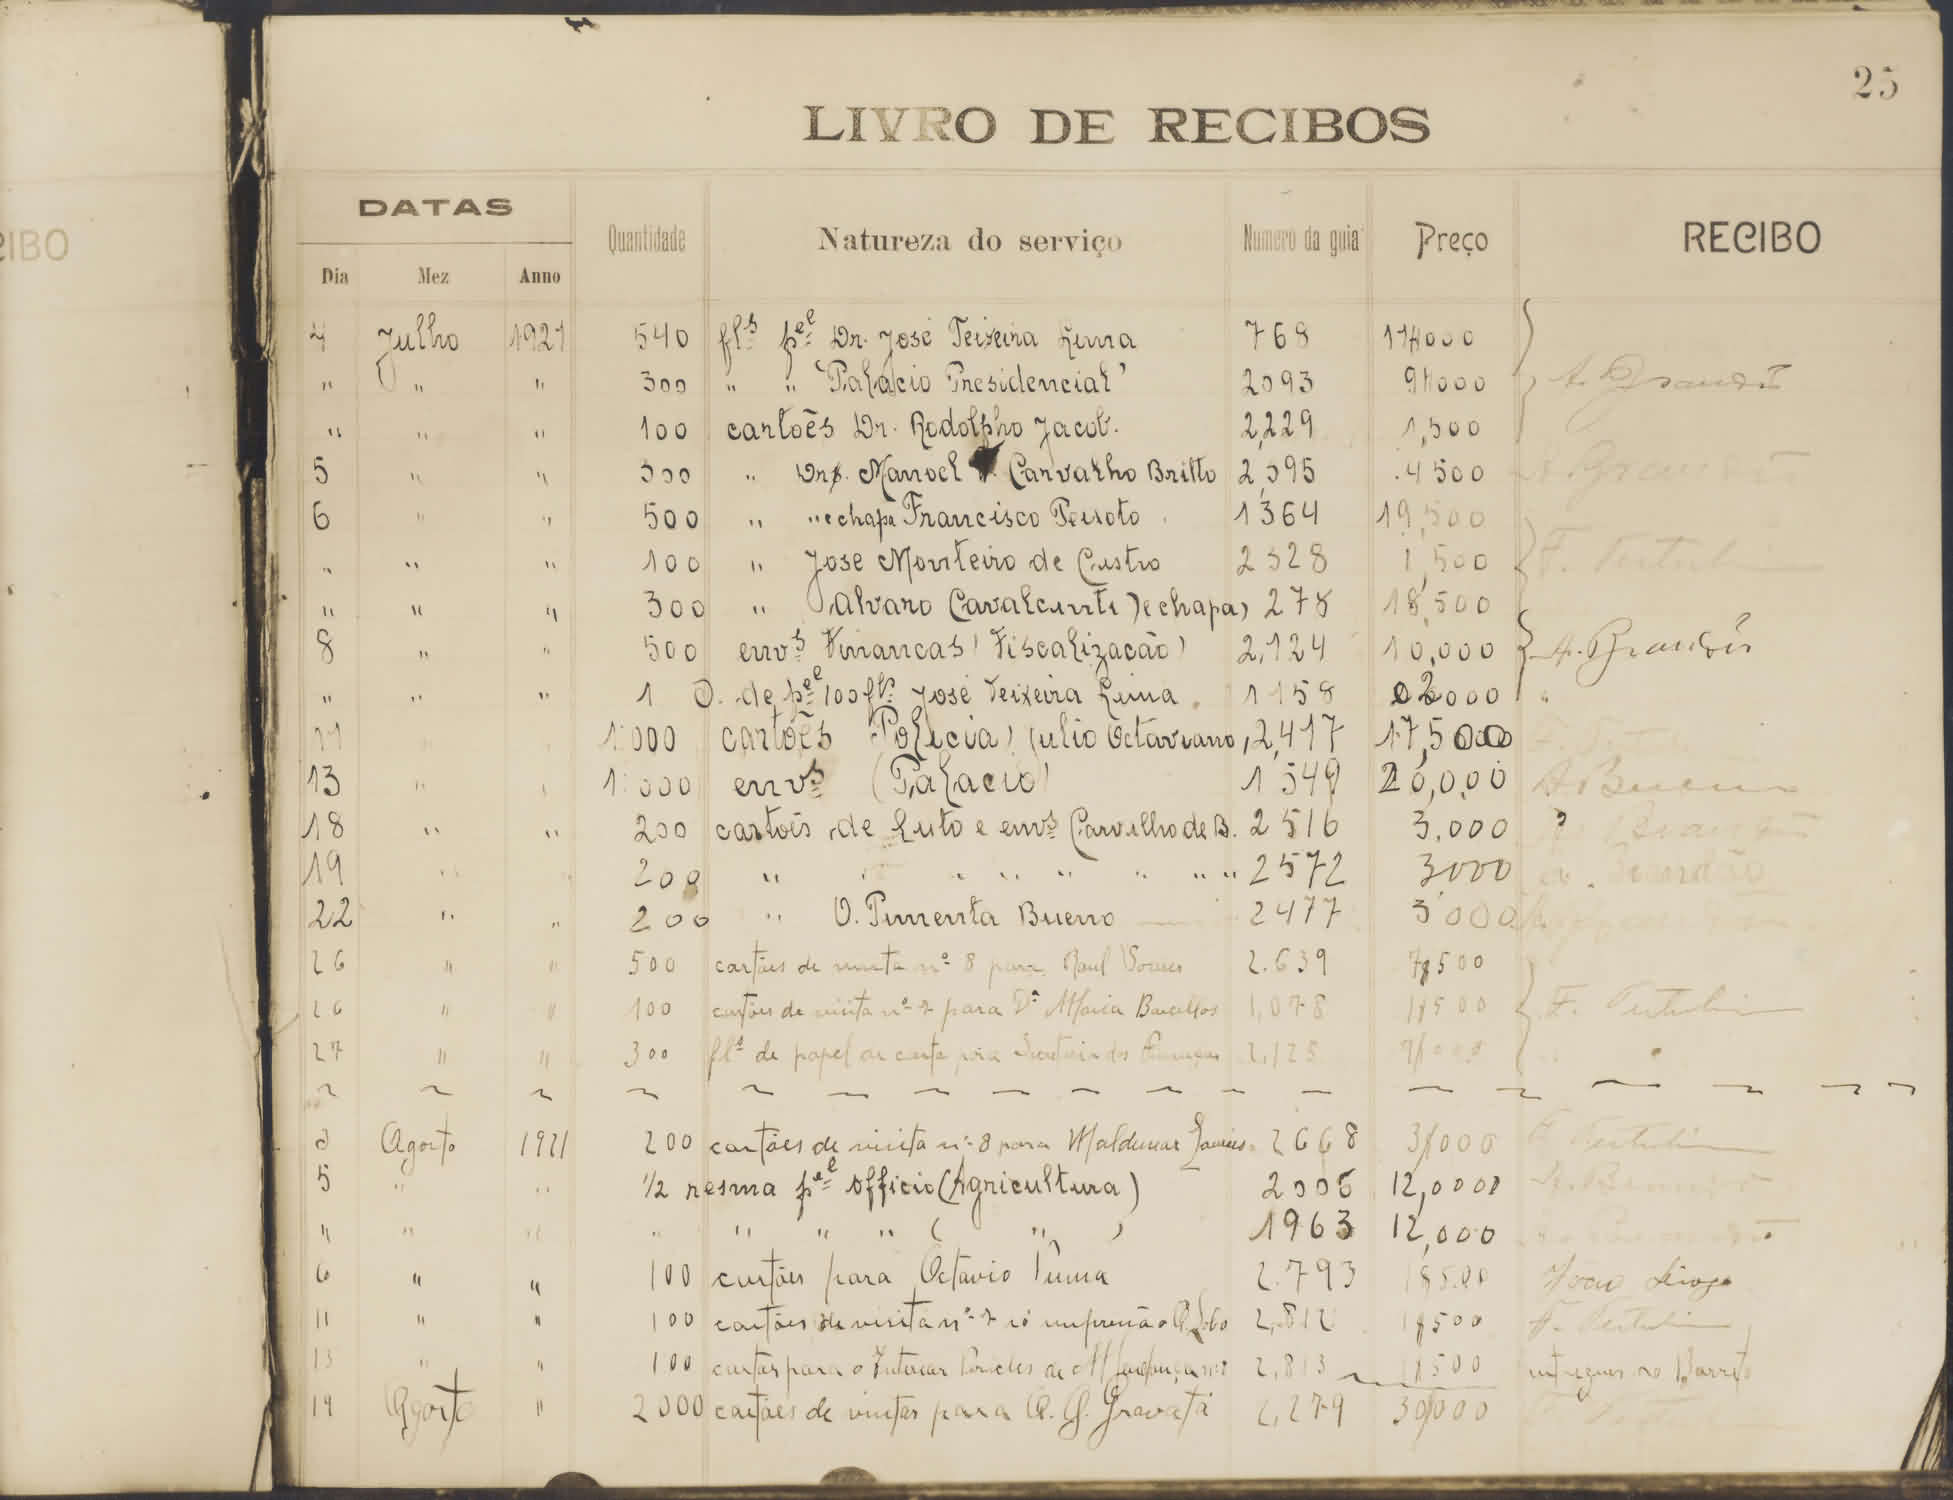 25
LIVRO DE RECIBOS
IBO
DATAS
Quantidade Natureza do serviço Numero da guia Preço RECIBO
Dia Mez Anno
4 Julho 1921 540 fls pel Dr. José Teixeira Lima 768 17$000
" " " 300 " " "Palacio Presidencial" 2093 9$000 A. Brandão
" " " 100 cartões Dr. Rodolpho Jacob. 2,229 1,500
5 " " 300 " Dr. Manoel Carvalho Britto 2,395 4500 A. Brandão
6 " " 500 " " e chapa Francisco Peixoto 1364 19,500
" " " 100 " José Monteiro de Castro 2328 1,500 F. Tertul
" " " 300 " Alvaro Cavalcanti (e chapa) 278 18,500
8 " " 500 envs Financas (Fiscalização) 2,124 10,000 A. Brandão
" " " 1 de pel 100 fls José Teixeira Lima 1158 000 "
11 1.000 cartões Policia (Julio Octaviano) 2,417 17,500
13 " " 1.000 envs (Palacio) 1549 20,000 A. Bueno
18 " " 200 cartões de luto e envs Carvalho de B. 2516 3.000 Brandão
19 " " 200 " " " " " " " 2572 3000 Brandão
22 " " 200 " O. Pimenta Bueno 2477 3000
26 " " 500 cartões de visita nº 8 para Raul Soares 2.639 7$500
26 " " 100 cartões de visita nº 7 para Dª Maria Barcellos 1,078 1$500 F. Tertul
27 " " 300 fls de papel de carta para Secretaria das Finanças 2,125 9$000
3 Agosto 1921 200 cartões de visita nº 8 para Waldemar 2668 3$000 F. Tertul
5 " " 1/2 resma pel officio (Agricultura) 2006 12,000
" " " " " " " ( " ) 1963 12,000
6 " " 100 cartões para Octavio Lima 2.793 1$500 João Diogo
11 " " 100 cartões de visita nº 7 só impressão Lobo 2,812 1$500 F. Tertul
13 " " 100 para o Pericles de 2,813 1$500 entregues ao Barreto
14 Agosto " 2000 cartões de visitas para A. G. Gravatá 2,279 30$000